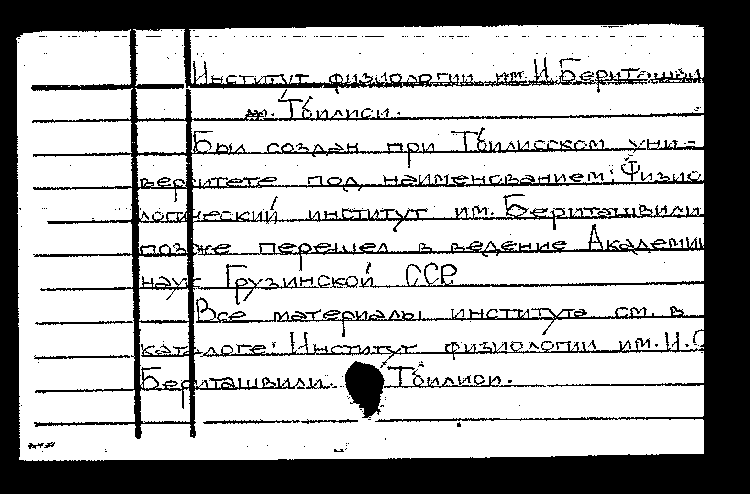 Институт физиологии им. И. Бериташви
Тбилиси.
Был создан при Тбилисском уни-
верситете под наименованием: Физио
логический институт им. Бериташвили
позже перешел в ведение Академии
наук Грузинской ССР
Все материалы института см. в
каталоге: Институт физиологии им. И. С
Бериташвили. Тбилиси.